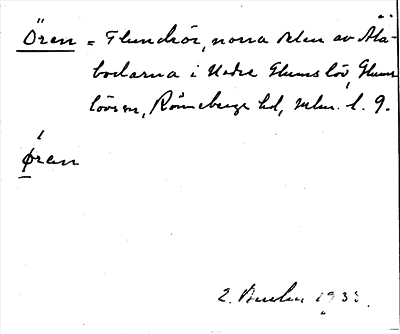 Ören = Flundrör, norra delen av Åla-
bodarna i Nedre Glumslöv, Glums-
lövs sn, Rönnebergs hd, Mlm. l. 9.
Øren
2. 193